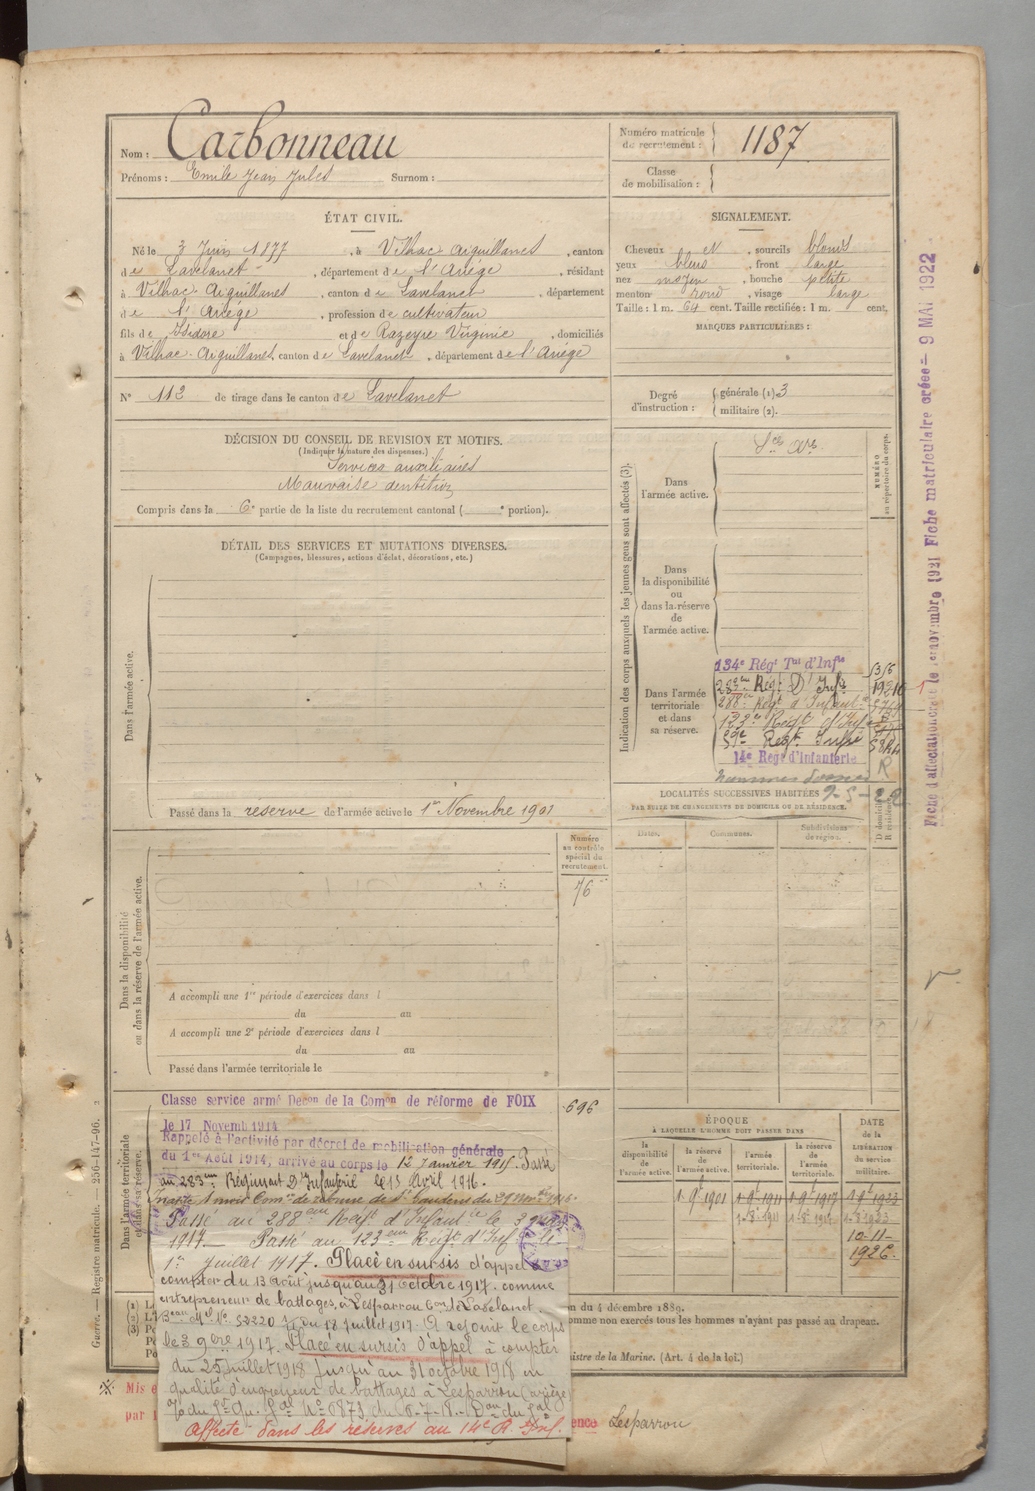 Nom : Carbonneau
Prénoms : Emile Jean Jules Surnom :
Numéro matricule de recrutement : 1187
Classe de mobilisation :
ÉTAT CIVIL.
Né le 3 Juin 1877, à Vilhac Aiguillanes, canton
de Lavelanet, département de l'Ariège, résidant
à Vilhac Aiguillanes, canton de Lavelanet, département
de l'Ariège, profession de cultivateur
fils de Isidore et de Razeyre Virginie, domiciliés
à Vilhac-Aiguillanes, canton de Lavelanet, département de l'Ariège
N° 112 de tirage dans le canton de Lavelanet
SIGNALEMENT.
Cheveux et, sourcils blonds
yeux bleus, front large
nez moyen, bouche petite
menton rond, visage large
Taille : 1 m. 64 cent. Taille rectifiée : 1 m. cent.
MARQUES PARTICULIÈRES :
Degré d'instruction : générale (1) 3
militaire (2).
DÉCISION DU CONSEIL DE REVISION ET MOTIFS.
(Indiquer la nature des dispenses.)
Services auxiliaires
Mauvaise dentition
Compris dans la 6e partie de la liste du recrutement cantonal ( e portion).
DÉTAIL DES SERVICES ET MUTATIONS DIVERSES.
(Campagnes, blessures, actions d'éclat, décorations, etc.)
Dans l'armée active.
Passé dans la réserve de l'armée active le 1er Novembre 1901
Indication des corps auxquels les jeunes gens sont affectés (3).
NUMÉRO au répertoire du corps.
Dans l'armée active.
Dans la disponibilité ou dans la réserve de l'armée active.
Dans l'armée territoriale et dans sa réserve.
134e Régt Tal d'Infie
283eme Reg: D'Infie
288eme Regt d'Infant.
123e Regt d'Inf
59e Regt Infie
14e Regt d'Infanterie
R
LOCALITÉS SUCCESSIVES HABITÉES
PAR SUITE DE CHANGEMENTS DE DOMICILE OU DE RÉSIDENCE.
Dates. Communes. Subdivisions de région. D domicile R résidence
Fiche matriculaire créée - 9 MAI 1922
Numéro au contrôle spécial du recrutement.
76
Dans la disponibilité ou dans la réserve de l'armée active.
A accompli une 1re période d'exercices dans l
du au
A accompli une 2e période d'exercices dans l
du au
Passé dans l'armée territoriale le
Dans l'armée territoriale et dans sa réserve.
Classe service armé Decon de la Comon de réforme de FOIX
696
le 17 Novemb 1914
Rappelé à l'activité par décret de mobilisation générale
du 1er Août 1914, arrivé au corps le 12 Janvier 1915. Passé
au 283eme Régiment D'Infanterie le 13 Avril 1916.
Passé au 288eme Regt d'Infantie le 3
1917. Passé au 123eme Regt d'Inf le
1er juillet 1917. Placé en sursis d'appel
compter du 13 Août jusqu'au 31 octobre 1917. comme
entrepreneur de battages, à Lesparrou Con de Lavelanet.
du 18 juillet 1917. A rejoint le corps
le 3 9bre 1917. Placé en sursis d'appel à compter
du 25 juillet 1918 jusqu'au 31 octobre 1918 en
qualité d'entrepreneur de battages à Lesparrou (Ariège)
Affecté dans les réserves au 14e R. Inf.
ÉPOQUE
À LAQUELLE L'HOMME DOIT PASSER DANS
la disponibilité de l'armée active. la réserve de l'armée active. l'armée territoriale. la réserve de l'armée territoriale.
DATE de la LIBÉRATION du service militaire.
1-9-1901 1-9-1911 1-9-1917 1-9-1923
10-11-1926.
on du 4 décembre 1889.
omme non exercés tous les hommes n'ayant pas passé au drapeau.
nistre de la Marine. (Art. 4 de la loi.)
Mis e
par l
ence Lesparrou
Guerre. — Registre matricule. — 256-147-96.